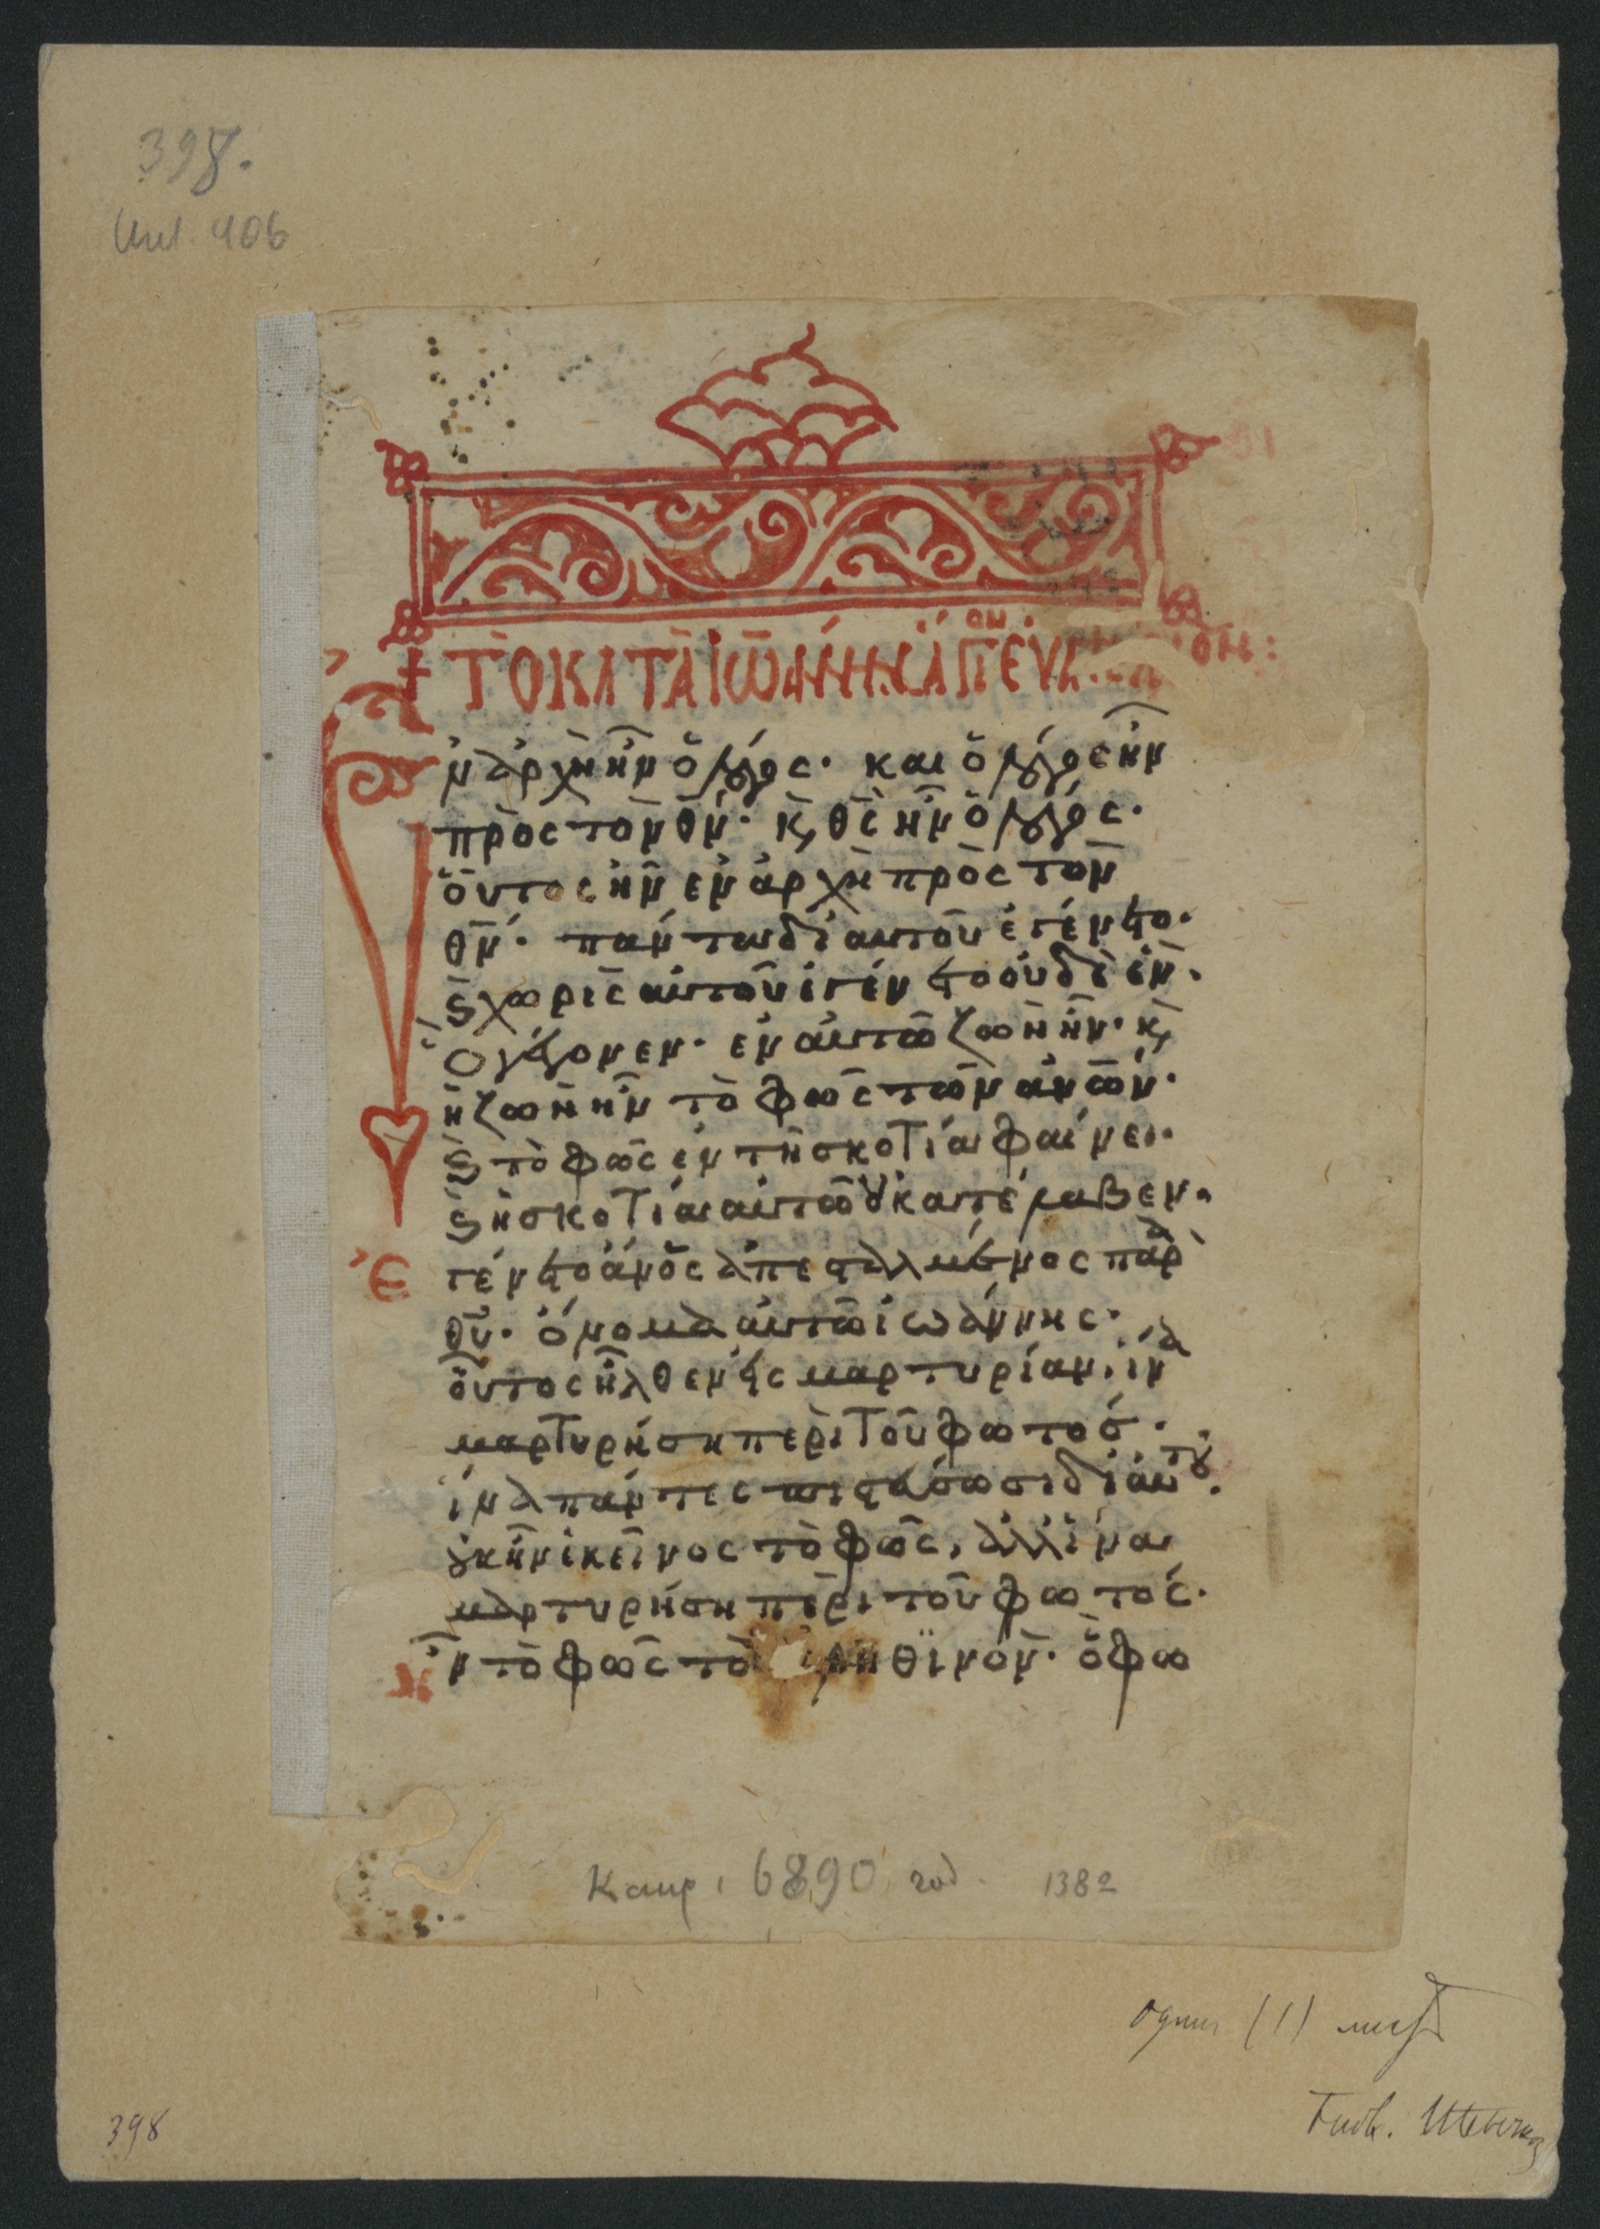 398.
Инв. 406
† ΤῸ ΚΑΤᾺ ἸΩΆΝΝΗΝ ἍΓΙΟΝ ΕΥΑ
Ἐν ἀρχῆ ἦν ὁ λόγος· και ὁ λόγος ἦν
πρὸς τὸν θν· κ θς ἦν ὁ λόγος·
οὗτος ἦν ἐν ἀρχῆ πρὸς τὸν
θν· πάντα δι αυτοῦ ἐγένετο·
κ χωρὶς αυτοῦ ἐγένετο ουδὲ ἓν·
ὃ γέγονεν· εν αυτῶ ζωὴ ἦν· κ
ἡ ζωὴ ἦν τὸ φῶς τῶν ανων·
κ τὸ φῶς ἐν τῆ σκοτία φαίνει·
κ ἡ σκοτία αυτῶ ȣκ ατέλαβεν·
Ἐγένετο ανος απεσταλμένος παρὰ
θυ· ὄνομα αυτῶ ἰωάννης·
οὗτος ἦλθεν εις μαρτυρίαν, ἵνα
μαρτυρήση περὶ τοῦ φωτός·
ἵνα πάντες πιστεύσωσι δι αυτȣ·
ȣκ ἦν ἐκεῖνος τὸ φῶς, ἀλλ ἵνα
μαρτυρήση περὶ τοῦ φωτός·
Ἦν τὸ φῶς τὸ ἀληθϊνὸν· ὃ φω
6890 год. 1382
один (1) лист
398